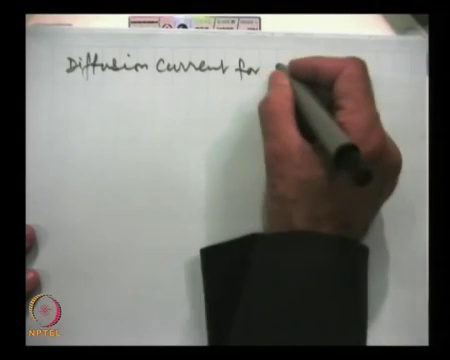 Diffusion Current for
NPTEL